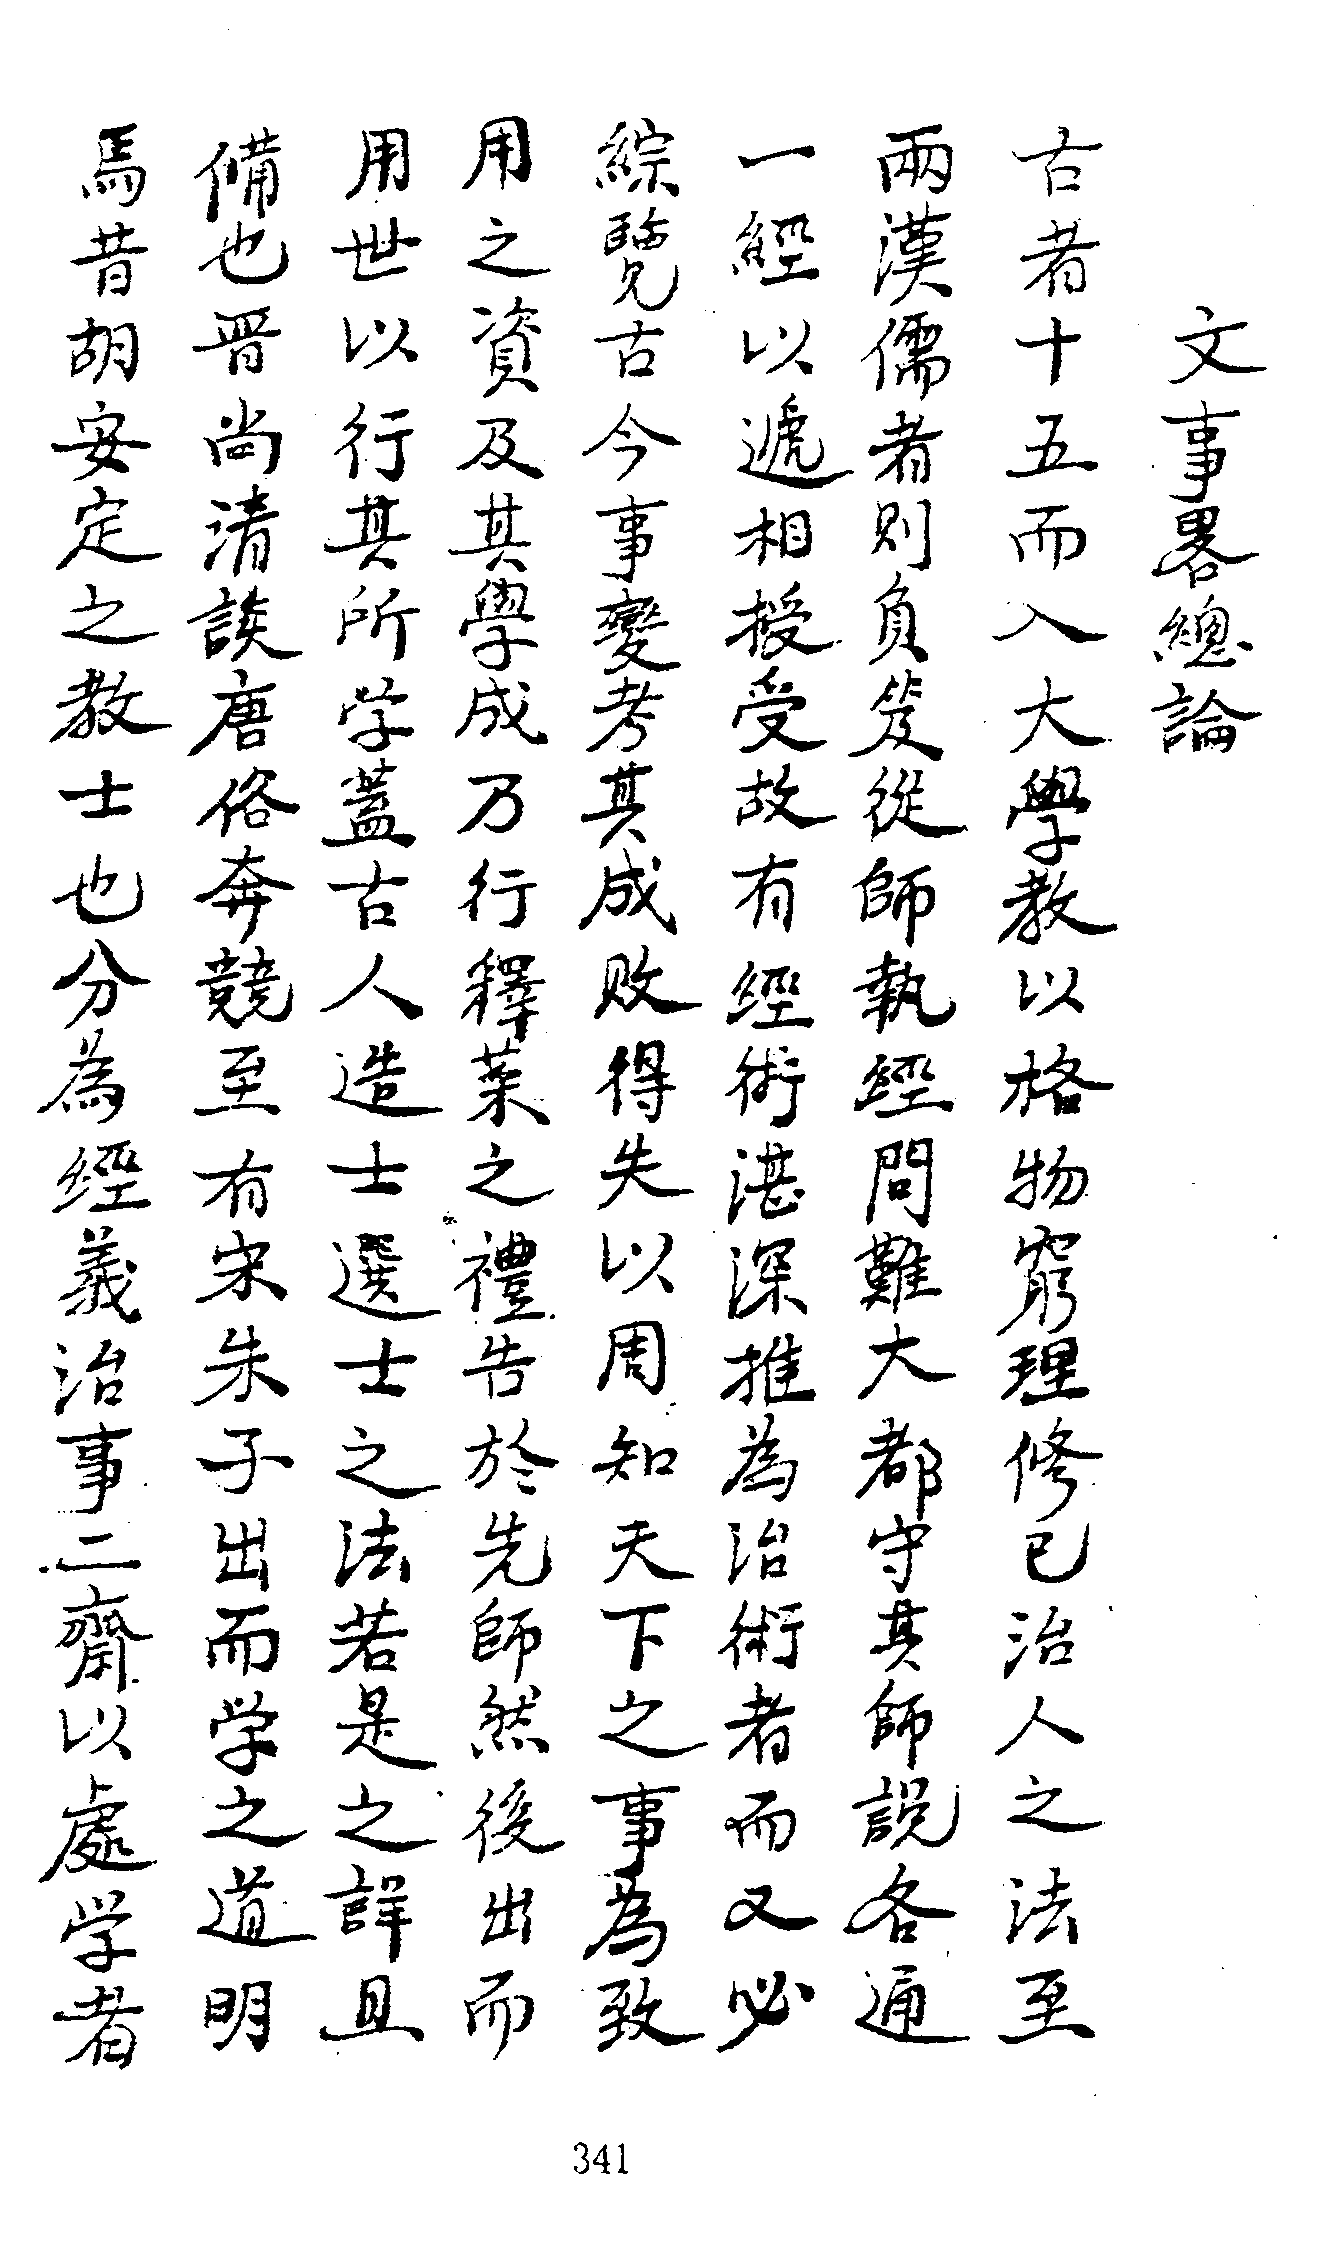 文事畧總論
古者十五而入大學教以格物窮理修己治人之法至
兩漢儒者則負笈從師執經問難大都守其師說各通
一經以遞相授受故有經術湛深推為治術者而又必
綜覽古今事變考其成敗得失以周知天下之事為致
用之資及其學成乃行釋菜之禮告於先師然後出而
用世以行其所学蓋古人造士選士之法若是之詳且
備也晋尚清談唐俗奔競至有宋朱子出而学之道明
焉昔胡安定之教士也分為經義治事二齋以處学者
341